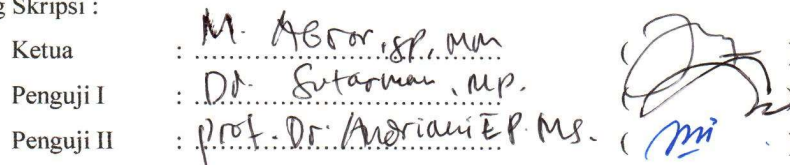 g Skripsi :
Ketua : M. Abror, SP, MM (
Penguji I : Dr. Sutarman, MP.
Penguji II : Prof. Dr. Andriani E P. MS. (